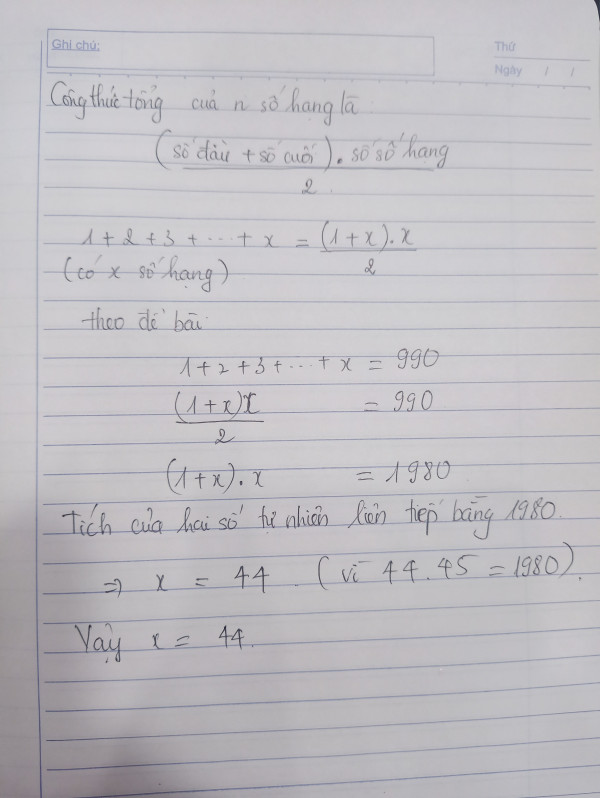 Ghi chú:
Thứ
Ngày / /
Công thức tổng của n số hạng là
(số đầu + số cuối). số số hạng
2
1 + 2 + 3 + ... + x = (1 + x). x
2
(có x số hạng)
theo đề bài
1 + 2 + 3 + ... + x = 990
(1 + x)x = 990
2
(1 + x). x = 1980
Tích của hai số tự nhiên liên tiếp bằng 1980.
⇒ x = 44. (vì 44.45 = 1980).
Vậy x = 44.